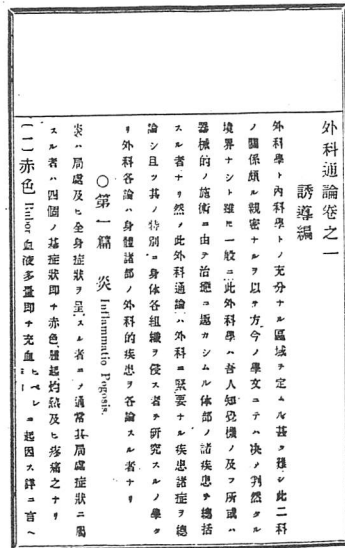 外科通論卷之一
誘導編
外科學ト內科學トノ充分ナル區域ヲ定ムル甚タ難シ此二科
ノ關係頗ル親密ナルヲ以テ方今ノ學文ニテハ決メ判然タル
境界ナシト雖ヒ一般ニ此外科學ハ吾人知覺機ノ及フ所或ハ
器械的ノ施術ニ由テ治癒ニ趣カシムル体部ノ諸疾患ヲ總括
スル者ナリ然メ此外科通論ハ外科ニ緊要ナル疾患諸症ヲ總
論シ且ツ其ノ特別ニ身体各組織ヲ侵ス者ヲ研究スルノ學タ
リ外科各論ハ身體諸部ノ外科的疾患ヲ各論スル者ナリ
○第一篇 炎 Inflammatio Pogosis.
炎ハ局處及ヒ全身症狀ヲ呈スル者ニメ通常其局處症狀ニ屬
スル者ハ四個ノ基症狀即チ赤色腫起灼熱及ヒ疼痛之ナリ
(一)赤色 血液多量即チ充血 ニ起因ス詳ニ言ヘ